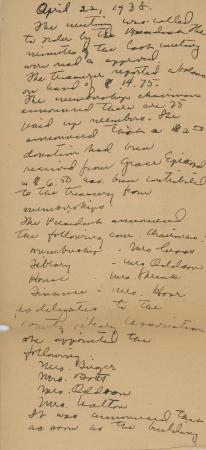 April 22, 1938.
The meeting was called
to order by the President. The
minutes of the last meeting
were read & approved.
The treasurer reported a balance
on hand of $14.75.
The membership chairman
announced there are 25
paid up members. She
announced that a $2.50
donation had been
received from Grace
& $6.50 had been contributed
to the treasury from
memberships.
The President announced
the following com. chairmen:
Membership - Mrs.
Library - Mrs. Addson
House Mrs.
Finance - Mrs. Hoar
as delegates to the
County Library Association
she appointed the
following
Mrs.
Mrs. Botts
Mrs. Addson
Mrs. Walton
It was announced that
as soon as the building